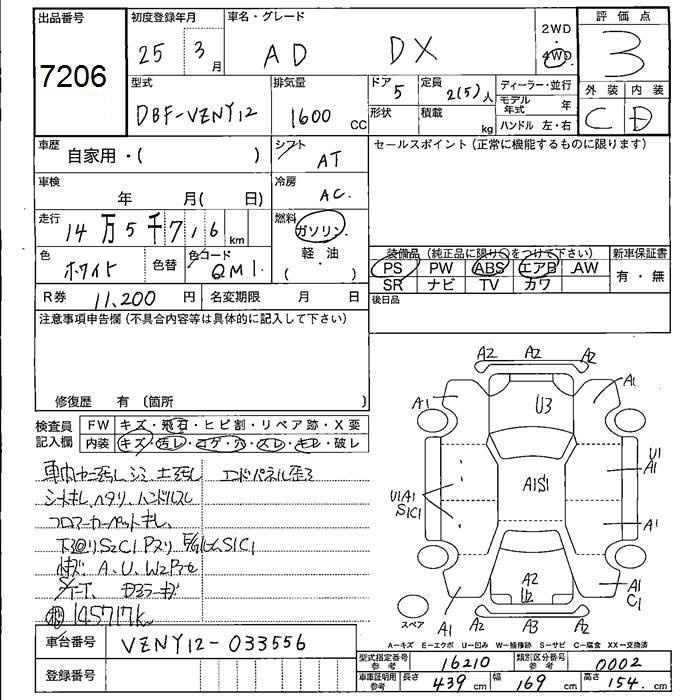 出品番号
7206
初度登録年月
25 3月
車名・グレード
AD DX
2WD
・
4WD
評価点
3
外装 内装
C D
型式
DBF-VZNY12
排気量
1600 CC
ドア
5
形状
定員
2(5)人
積載
kg
ディーラー・並行
モデル年式 年
ハンドル 左・右
車歴
自家用・( )
シフト
AT
車検
年 月( 日)
冷房
AC.
走行
14万5千716 km
燃料
ガソリン
・
軽油
( )
色
ホワイト
色替
色コード
QM1.
R券 11,200 円
名変期限 月 日
セールスポイント(正常に機能するものに限ります)
装備品(純正品に限り○をつけて下さい)
PS PW ABS エアB AW
SR ナビ TV カワ
新車保証書
有・無
後日品
注意事項申告欄(不具合内容等は具体的に記入して下さい)
修復歴 有〔箇所 〕
検査員記入欄
FW キズ・飛石・ヒビ割・リペア跡・X要
内装 キズ・汚レ・コゲ・穴・スレ・キレ・破レ
エンドパネル歪み
シートキレ、ヘタリ、ハンドルスレ
フロアーカーペットキレ、
下廻りS2C1
A、U、W2
145717k
A2 A2 A2
A1 U3 A1
U1A1
S1C1
A1S1
U1
A1
A1
A2
U2
A1
C1
A1 A2 A3 A2
スペア
A-キズ E-エクボ U-凹み W-補修跡 S-サビ C-腐食 XX-交換済
車台番号 VZNY12-033556
登録番号
型式指定番号参考 16210
類別区分番号参考 0002
車庫証明用参考 長さ 439 cm 幅 169 cm 高さ 154. cm